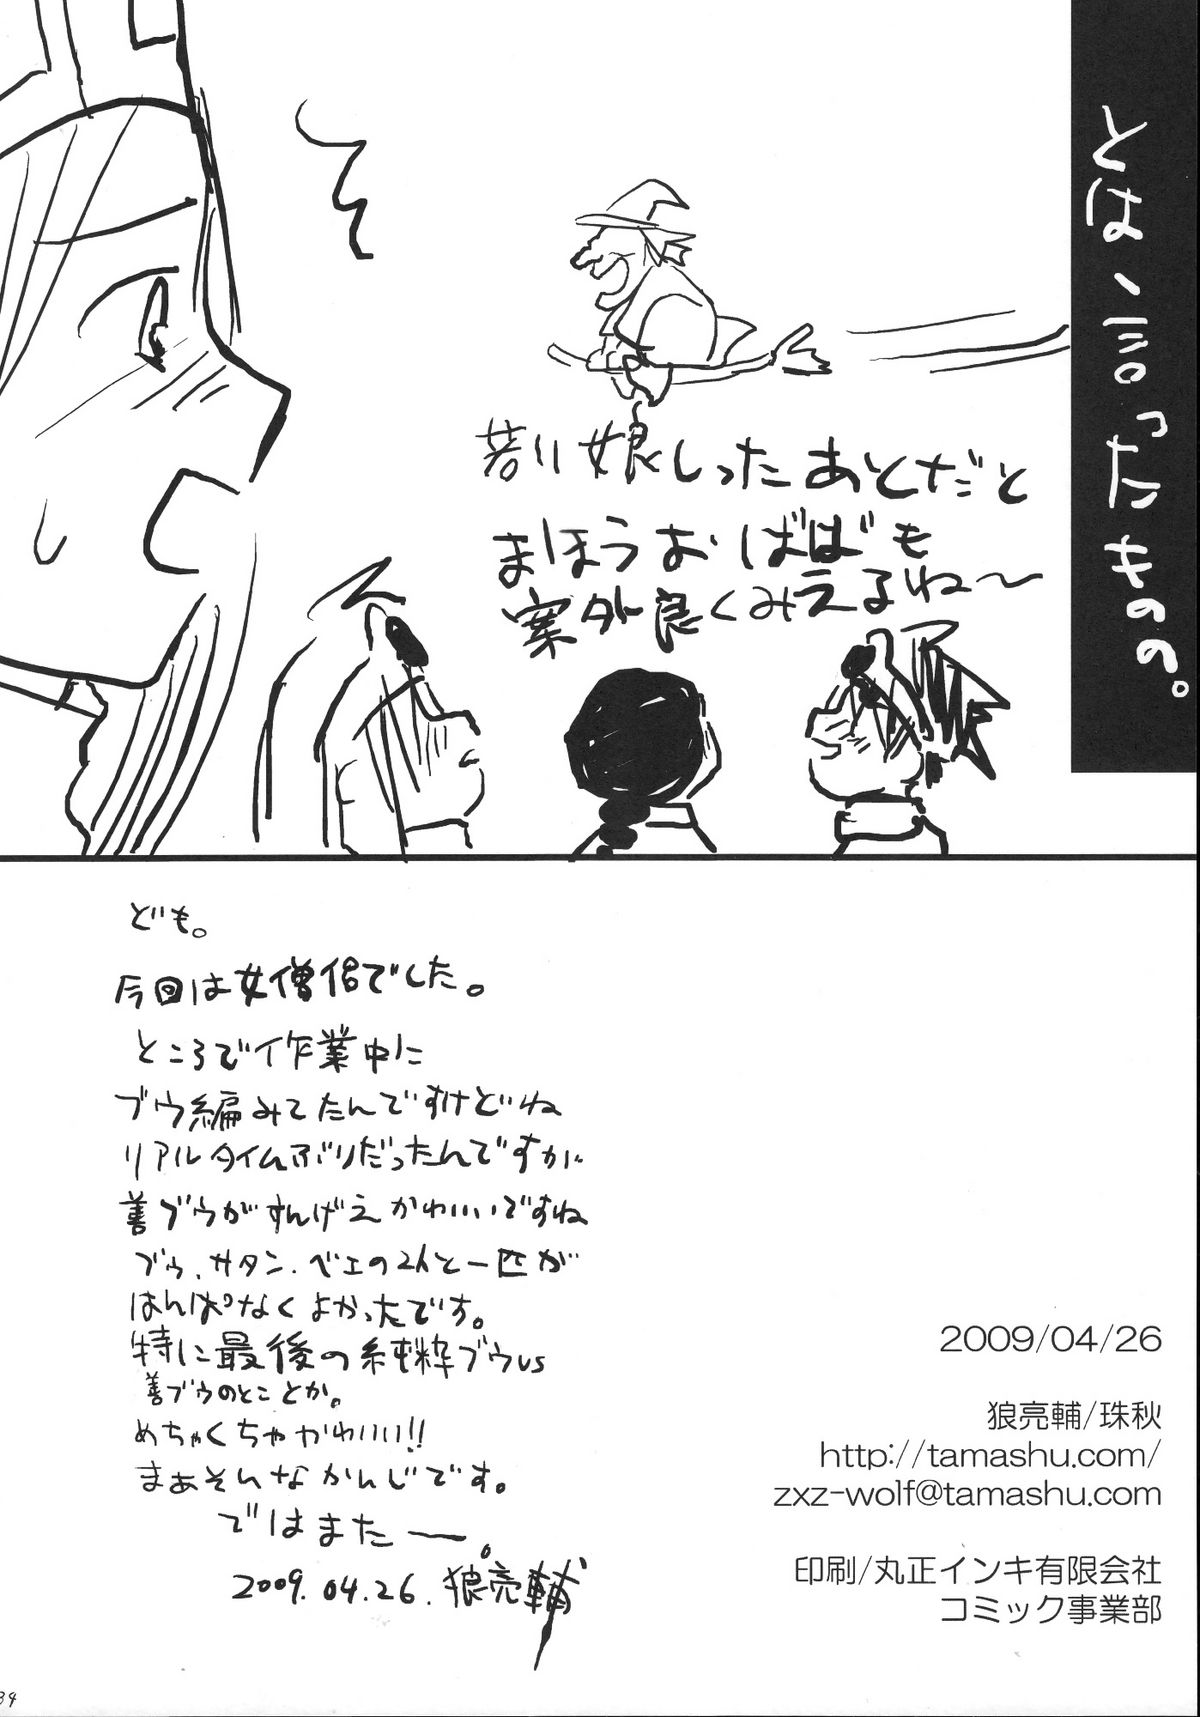 とは、言ったものの。
若い娘しったあとだと
まほうおばばも
案外良くみえるね〜
ども。
今回は女僧侶でした。
ところで作業中に
ブウ編みてたんですけどね
リアルタイムぶりだったんですが
善ブウがすんげえかわいいですね
ブゥ、サタン、ベエの2人と一匹が
はんぱなくよかったです。
特に最後の純粋ブウvs
善ブウのとことか。
めちゃくちゃかわいい!!
まぁそんなかんじです。
ではまたー。
2009.04.26.狼亮輔
2009/04/26
狼亮輔/珠秋
http://tamashu.com/
zxz-wolf@tamashu.com
印刷/丸正インキ有限会社
コミック事業部